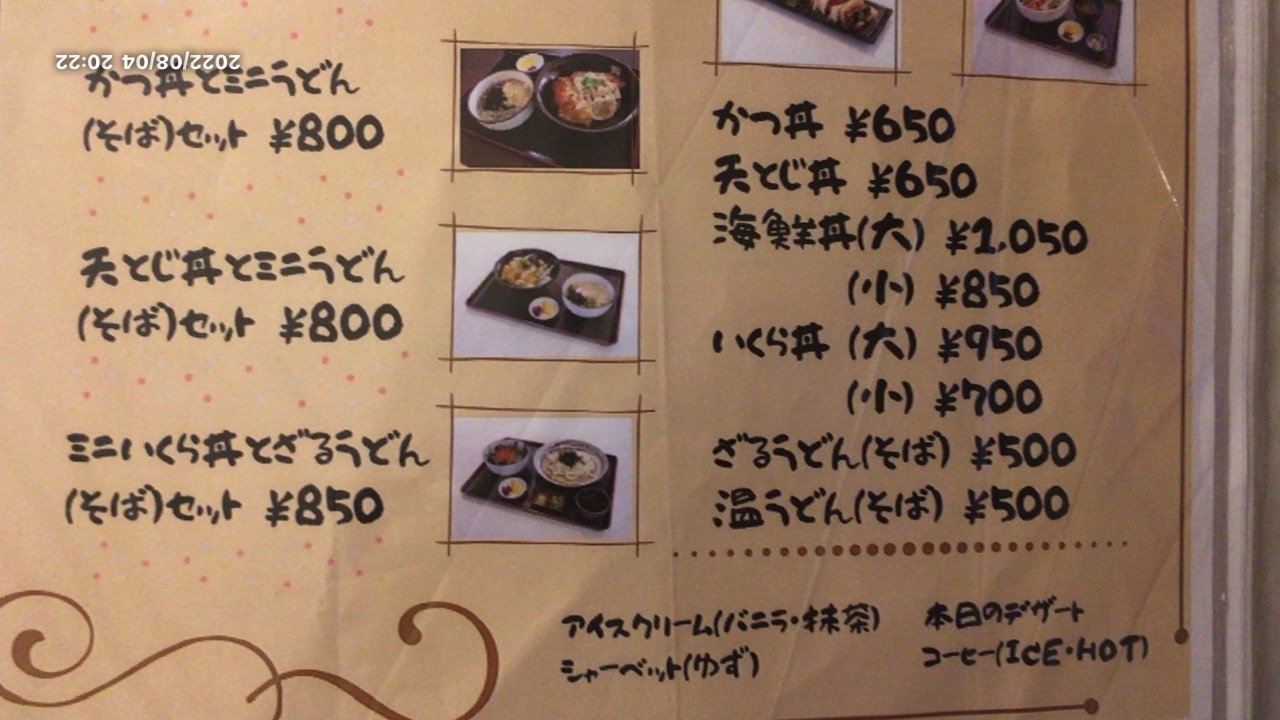 2022/08/04 20:22
かつ丼とミニうどん
(そば)セット ¥800
天とじ丼とミニうどん
(そば)セット ¥800
ミニいくら丼とざるうどん
(そば)セット ¥850
かつ丼 ¥650
天とじ丼 ¥650
海鮮丼(大) ¥1,050
(小) ¥850
いくら丼 (大) ¥950
(小) ¥700
ざるうどん(そば) ¥500
温うどん(そば) ¥500
アイスクリーム(バニラ・抹茶)
シャーベット(ゆず)
本日のデザート
コーヒー(ICE・HOT)